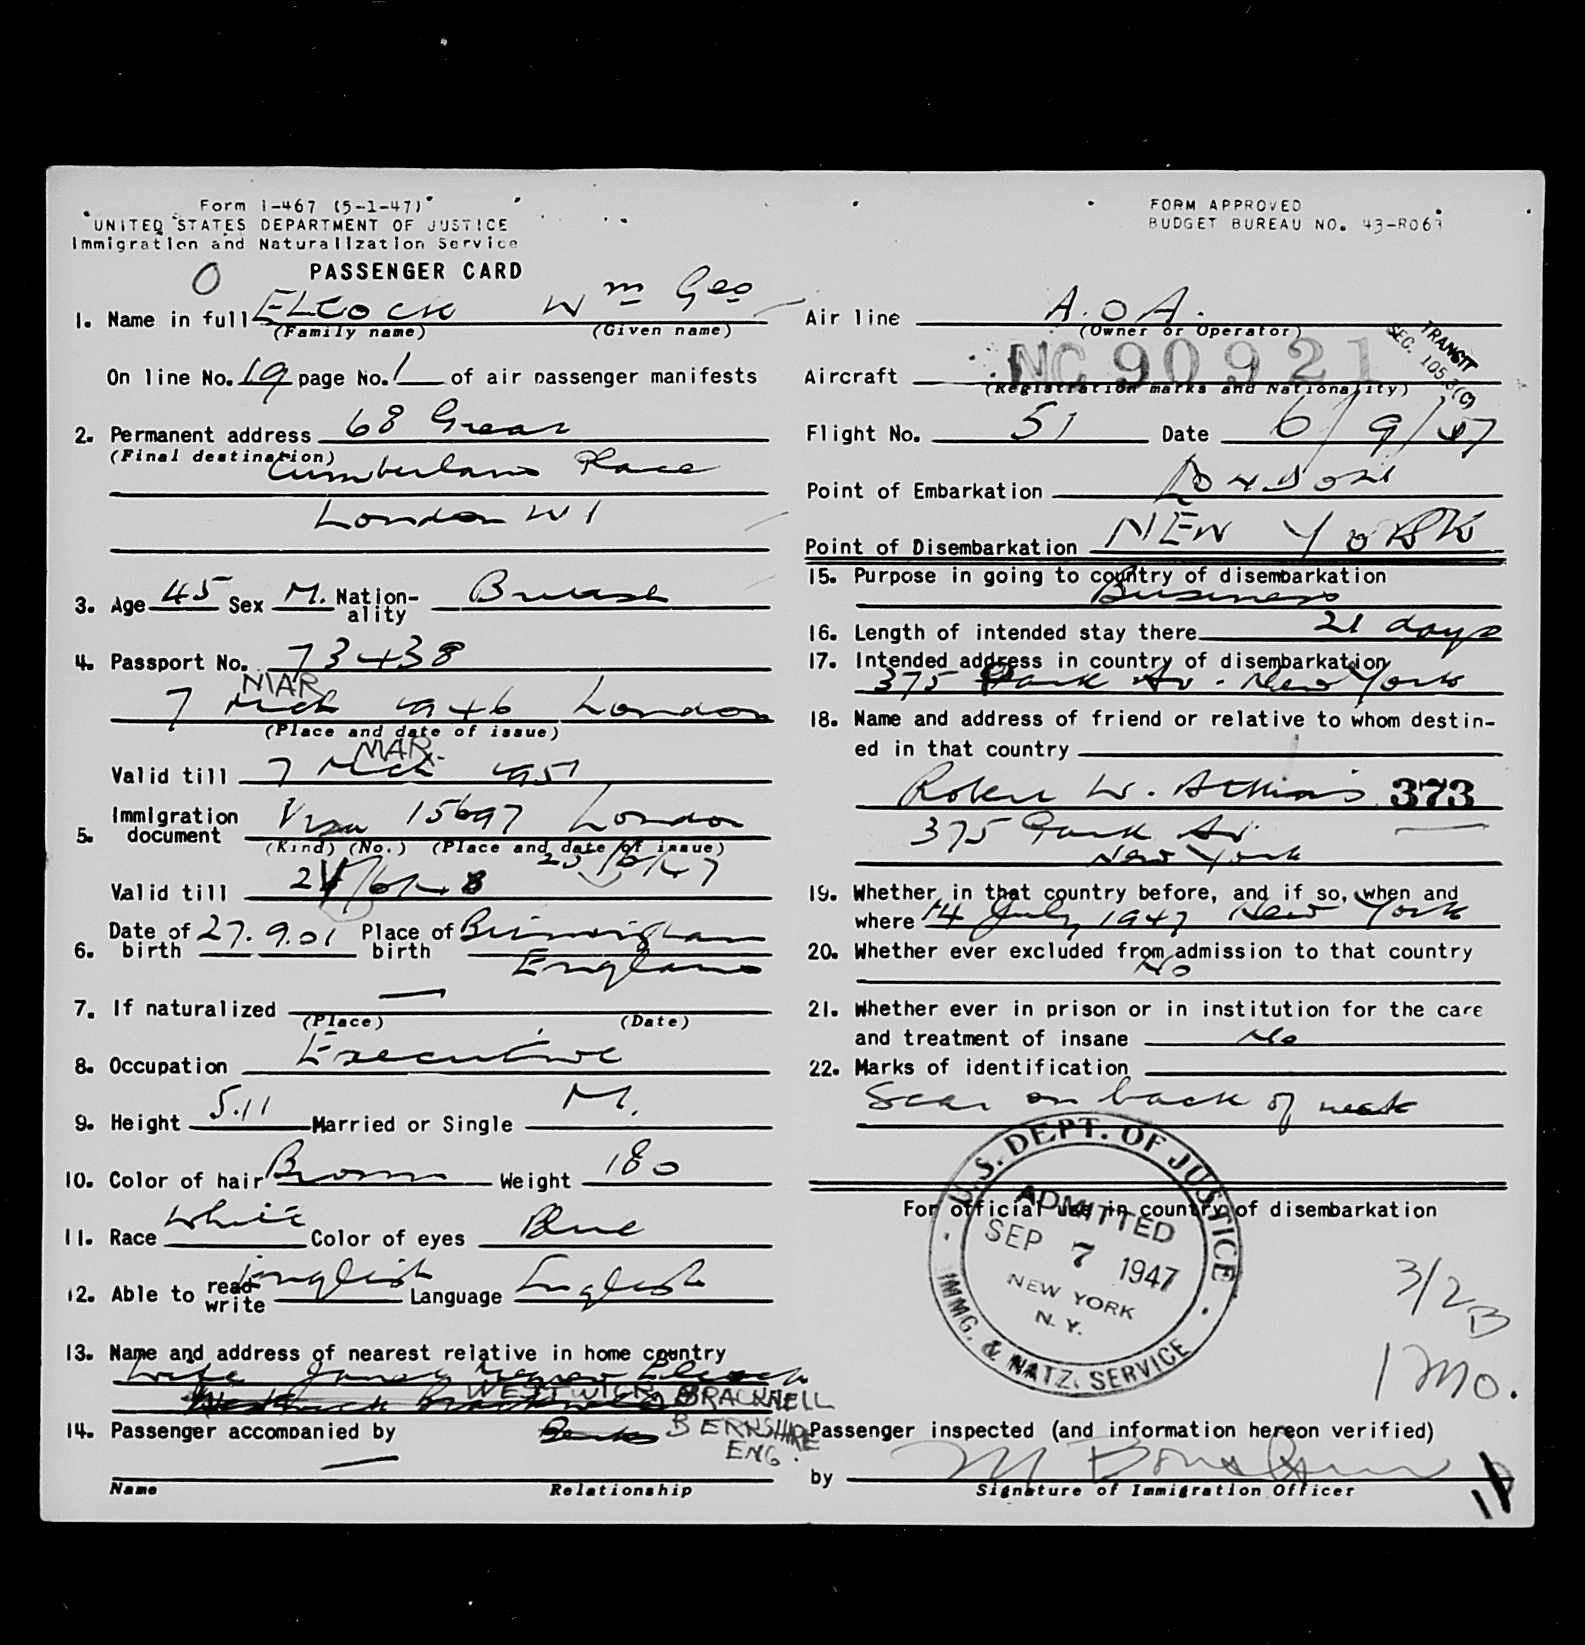 Form I-467 (5-1-47)
UNITED STATES DEPARTMENT OF JUSTICE
Immigration and Naturalization Service
FORM APPROVED
BUDGET BUREAU NO. 43-R063
O
PASSENGER CARD
1. Name in full ELCOCK Wm Geo
(Family name) (Given name)
On line No. 19 page No. 1 of air passenger manifests
2. Permanent address 68 Great
(Final destination) Cumberland Place
London W1
3. Age 45 Sex M. Nation-ality British
4. Passport No. 73438
MAR
7 Mch 1946 London
(Place and date of issue)
MAR.
Valid till 7 Mch 1951
5. Immigration document Visa 15697 London
(Kind) (No.) (Place and date of issue)
25/6/47
Valid till 24/6/48
6. Date of birth 27.9.01 Place of birth Birmingham
England
7. If naturalized —
(Place) (Date)
8. Occupation Executive
9. Height 5.11 Married or Single M.
10. Color of hair Brown Weight 180
11. Race White Color of eyes Blue
12. Able to read write English Language English
13. Name and address of nearest relative in home country
Wife Elcock
WESTWICK BRACKNELL
Berks BERKSHIRE
ENG.
14. Passenger accompanied by
—
Name Relationship
Air line A.O.A.
(Owner or Operator)
TRANSIT
SEC. 105.3(C)
Aircraft NC 90921
(Registration marks and Nationality)
Flight No. 51 Date 6/9/47
Point of Embarkation LONDON
Point of Disembarkation NEW YORK
15. Purpose in going to country of disembarkation
Business
16. Length of intended stay there 21 days
17. Intended address in country of disembarkation
375 Park Av. New York
18. Name and address of friend or relative to whom destin-
ed in that country
Robert W. Atkins 373
375 Park Av.
New York
19. Whether in that country before, and if so, when and
where 14 July 1947 New York
20. Whether ever excluded from admission to that country
No
21. Whether ever in prison or in institution for the care
and treatment of insane No
22. Marks of identification
Scar on back of neck
For official use in country of disembarkation
U.S. DEPT. OF JUSTICE
ADMITTED
SEP 7 1947
NEW YORK
N. Y.
IMMG. & NATZ. SERVICE
3/2 B
1 Mo.
Passenger inspected (and information hereon verified)
by M
Signature of Immigration Officer